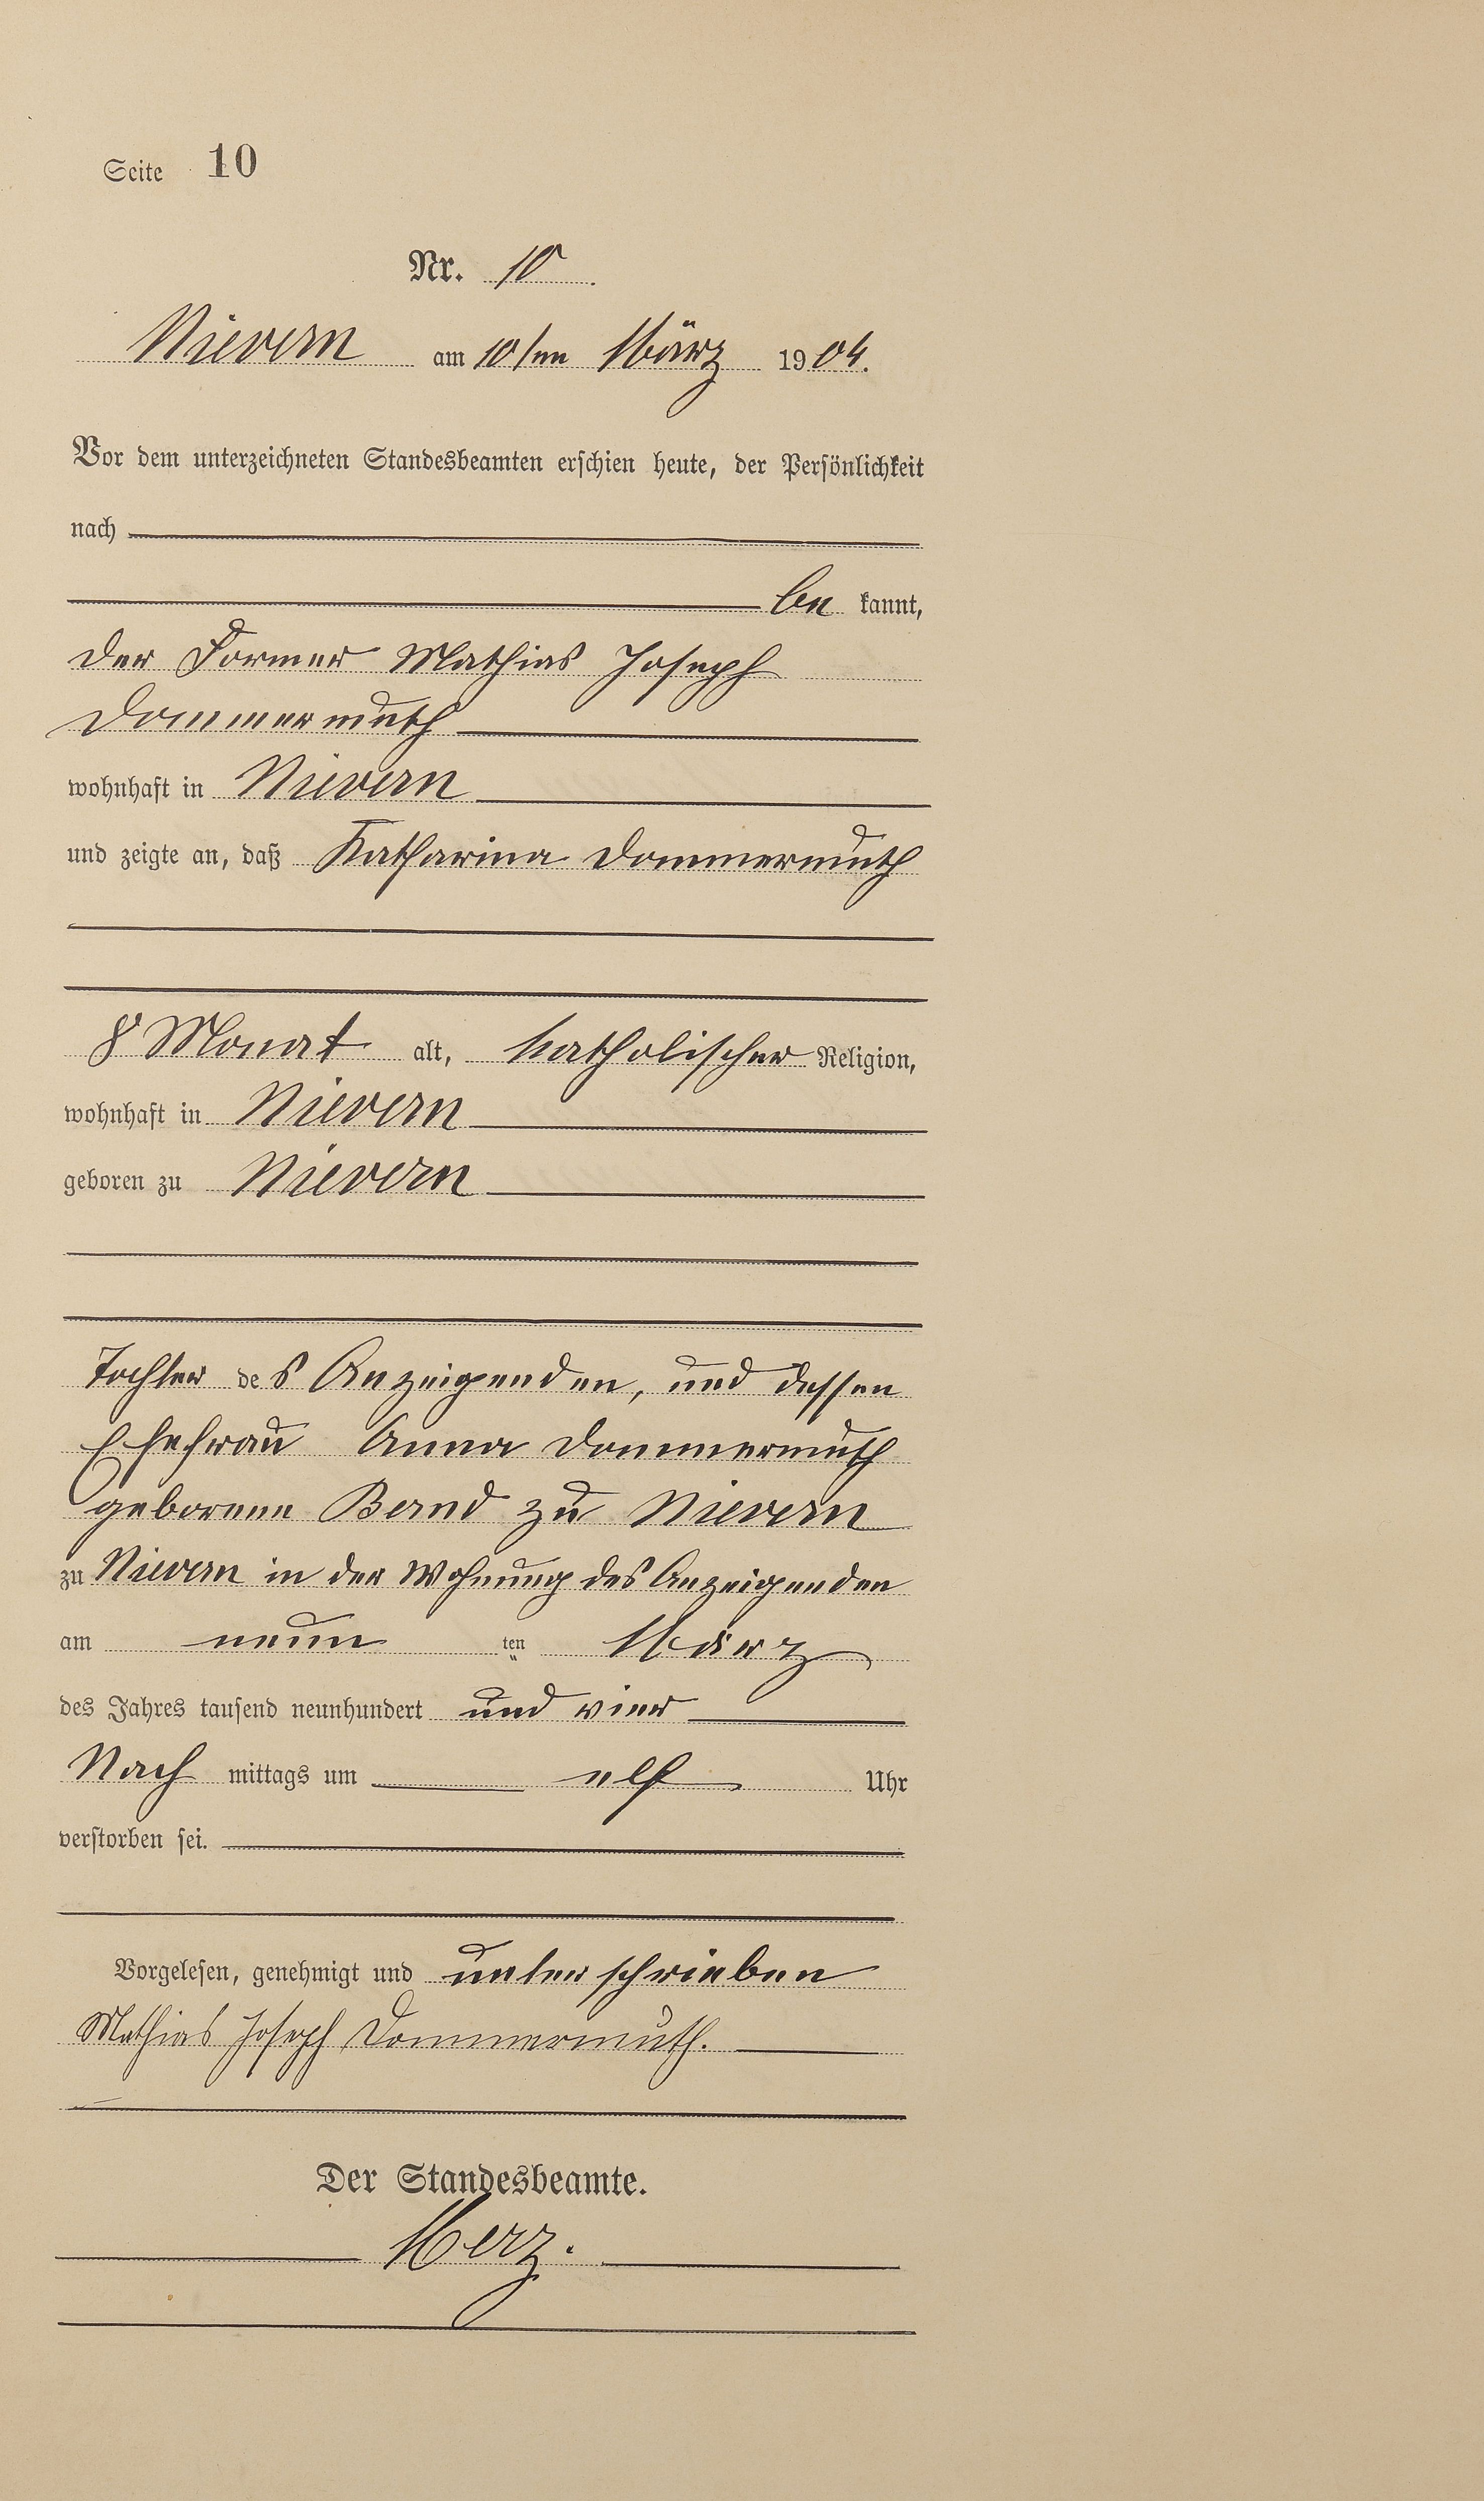 Seite 10
Nr. 10.
Nievern am 10ten März 1904.
Vor dem unterzeichneten Standesbeamten erschien heute, der Persönlichkeit
nach
be kannt,
der Former Mathias Joseph
Dommermuth
wohnhaft in Nievern
und zeigte an, daß Katharina Dommermuth
8 Monat alt, katholischer Religion,
wohnhaft in Nievern
geboren zu Nievern
Tochter des Anzeigenden, und dessen
Ehefrau Anna Dommermuth
geborene Band zu Nievern
zu Nievern in der Wohnung des Anzeigenden
am neun ten März
des Jahres tausend neunhundert und vier
Nach mittags um elf Uhr
verstorben sei.
Vorgelesen, genehmigt und unterschrieben
Mathias Joseph Dommermuth.
Der Standesbeamte.
Merz.